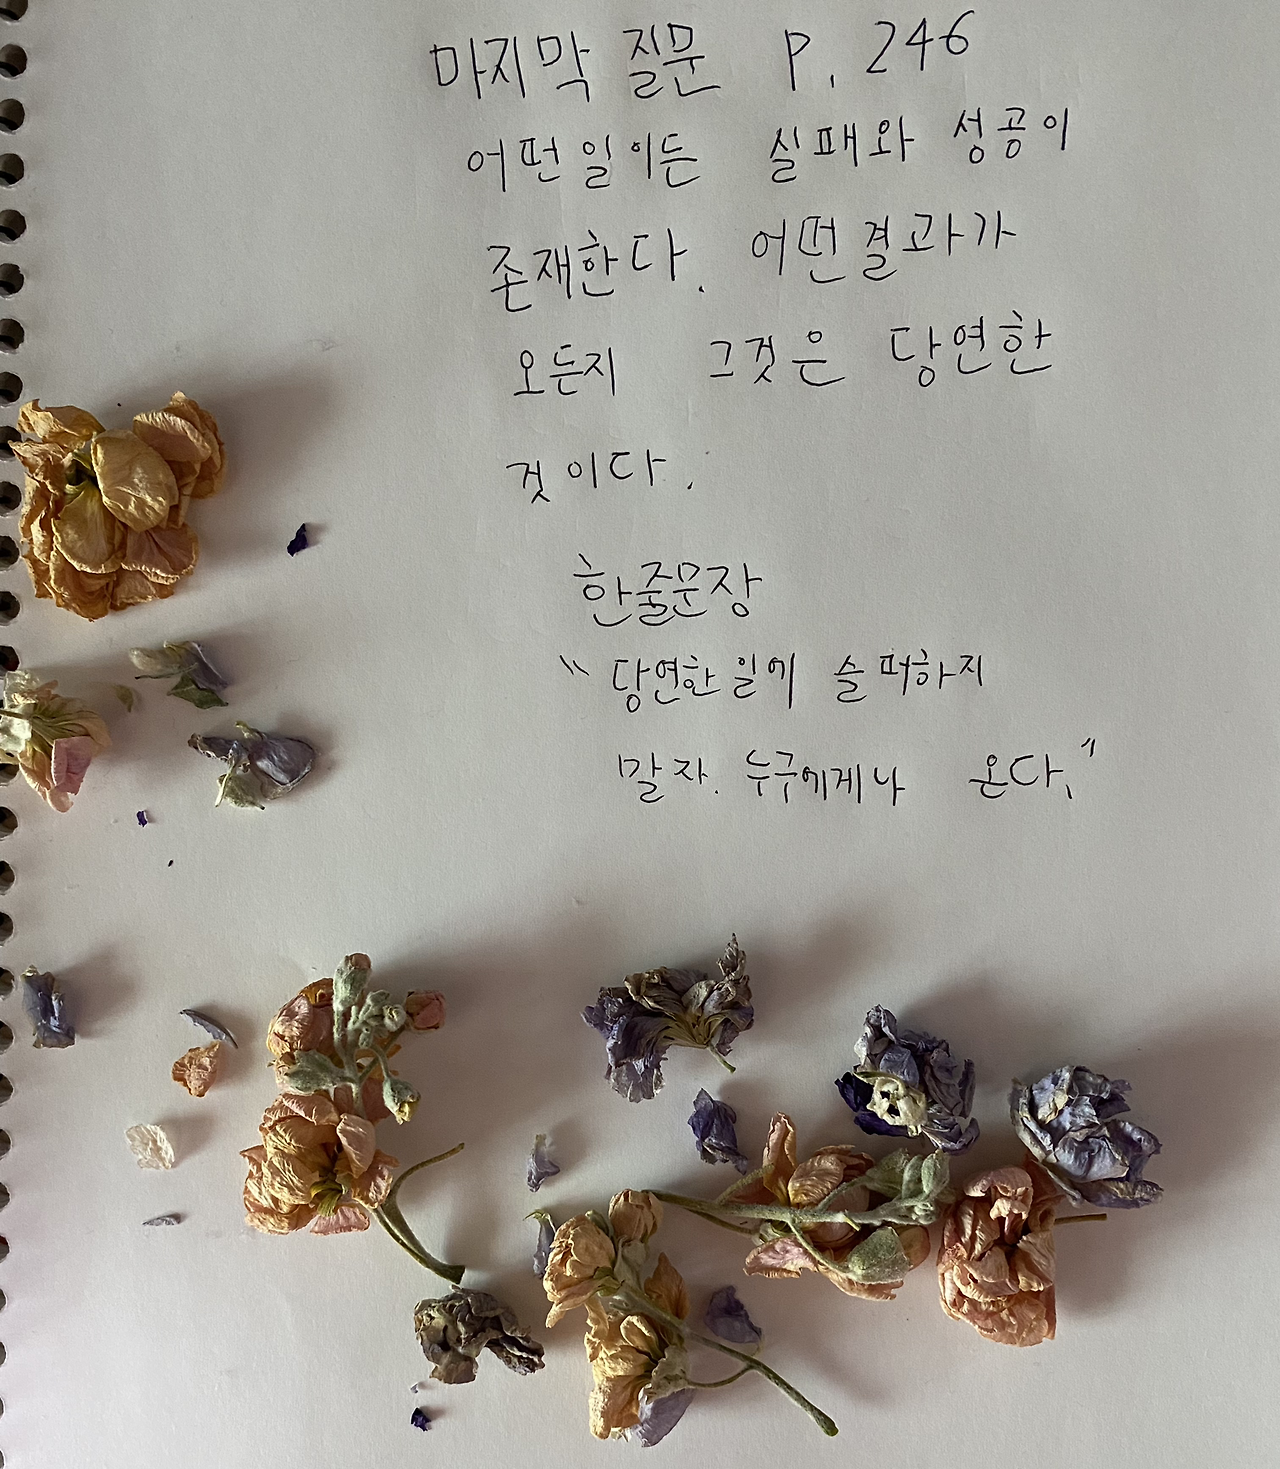 마지막 질문 P. 246
어떤일이든 실패와 성공이
존재한다. 어떤결과가
오든지 그것은 당연한
것이다.
한줄문장
"당연한일에 슬퍼하지
말자. 누구에게나 온다."